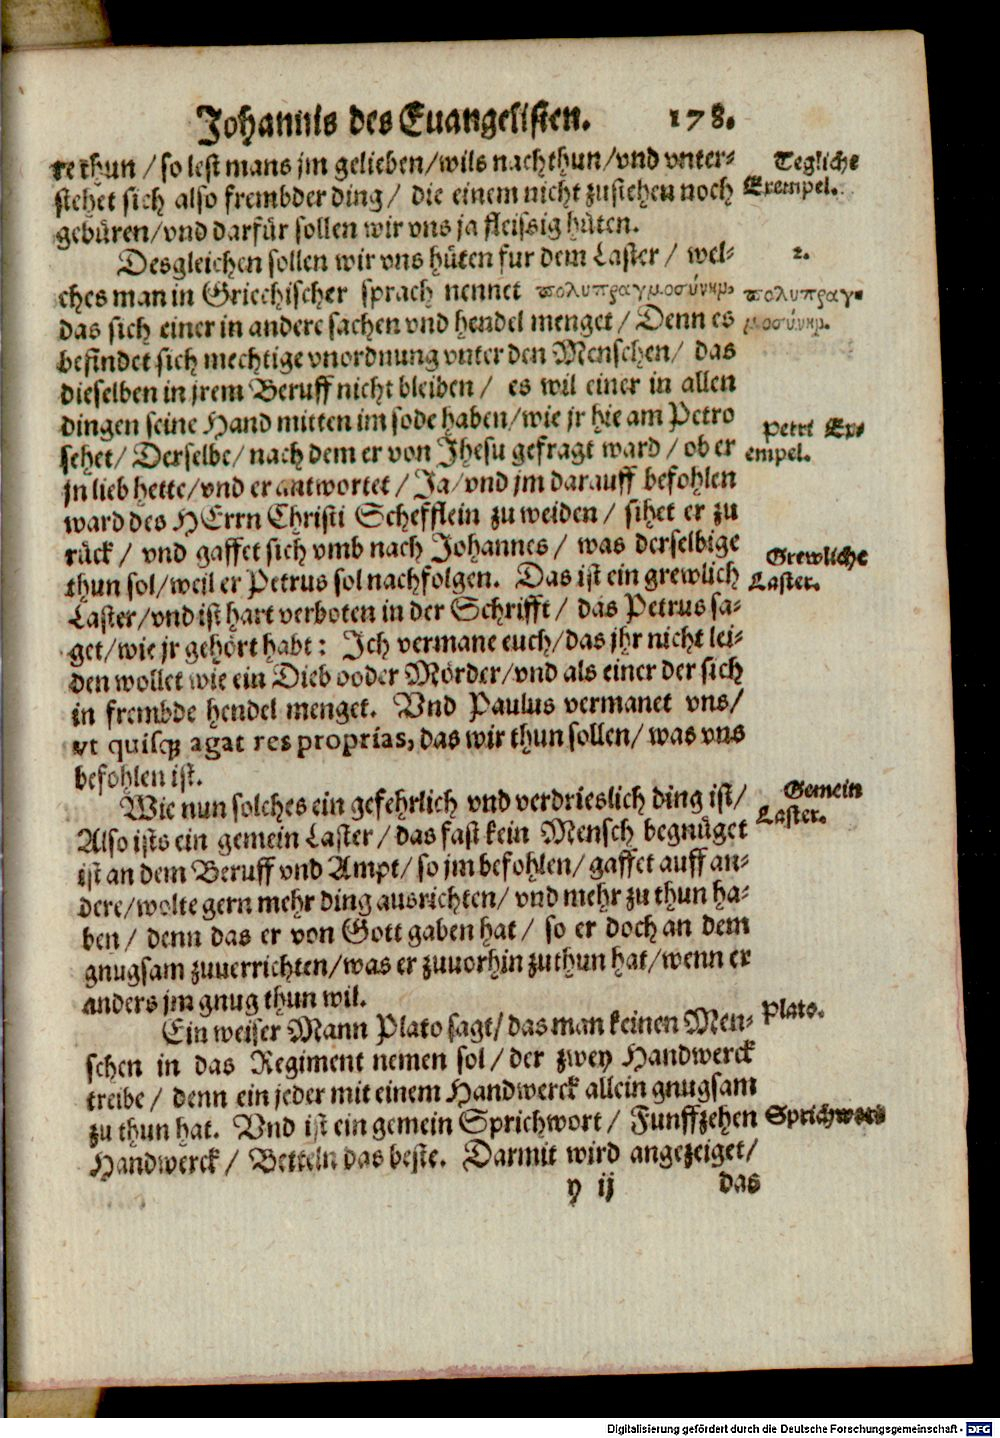 Johannis des Euangelisten. 178.
re thun / so lest mans jm gelieben/wils nachthun/vnd vnter-
stehet sich also frembder ding / die einem nicht zustehen noch
gebüren/vnd darfür sollen wir vns ja fleissig hüten.
Tegliche
Exempel.
Desgleichen sollen wir vns hüten fur dem Laster / wel-
2.
ches man in Griechischer sprach nennet πολυπραγμοσύνην,
das sich einer in andere sachen vnd hendel menget / Denn es
πολυπραγ-
μοσύνην.
befindet sich mechtige vnordnung vnter den Menschen / das
dieselben in jrem Beruff nicht bleiben / es wil einer in allen
dingen seine Hand mitten im sode haben/wie jr hie am Petro
sehet/ Derselbe/ nach dem er von Jhesu gefragt ward / ob er
Petri Ex-
empel.
jn lieb hette/vnd er antwortet / Ja/vnd jm darauff befohlen
ward des HErrn Christi Schefflein zu weiden / sihet er zu
rück / vnd gaffet sich vmb nach Johannes / was derselbige
thun sol/weil er Petrus sol nachfolgen. Das ist ein grewlich
Grewliche
Laster.
Laster/vnd ist hart verboten in der Schrifft / das Petrus sa-
get/wie jr gehört habt: Ich vermane euch/das jhr nicht lei-
den wollet wie ein Dieb ooder Mörder/vnd als einer der sich
in frembde hendel menget. Vnd Paulus vermanet vns/
vt quisq; agat res proprias, das wir thun sollen/ was vns
befohlen ist.
Wie nun solches ein gefehrlich vnd verdrieslich ding ist/
Also ists ein gemein Laster / das fast kein Mensch begnüget
Gemein
Laster.
ist an dem Beruff vnd Ampt/ so jm befohlen/ gaffet auff an-
dere/wolte gern mehr ding ausrichten/ vnd mehr zu thun ha-
ben / denn das er von Gott gaben hat / so er doch an dem
gnugsam zuuerrichten/was er zuuorhin zuthun hat/wenn er
anders jm gnug thun wil.
Ein weiser Mann Plato sagt/ das man keinen Men-
Plato.
schen in das Regiment nemen sol / der zwey Handwerck
treibe / denn ein jeder mit einem Handwerck allein gnugsam
zu thun hat. Vnd ist ein gemein Sprichwort / Funffzehen
Sprichwort
Handwerck / Betteln das beste. Darmit wird angezeiget/
y ij das
Digitalisierung gefördert durch die Deutsche Forschungsgemeinschaft - DFG